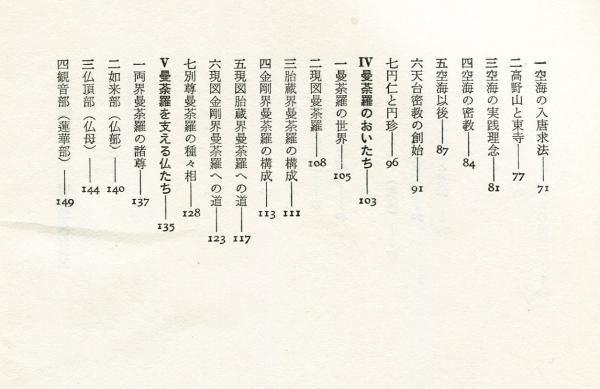 一空海の入唐求法――71
二高野山と東寺――77
三空海の実践理念――81
四空海の密教――84
五空海以後――87
六天台密教の創始――91
七円仁と円珍――96
Ⅳ曼荼羅のおいたち――103
一曼荼羅の世界――105
二現図曼荼羅――108
三胎蔵界曼荼羅の構成――111
四金剛界曼荼羅の構成――113
五現図胎蔵界曼荼羅への道――117
六現図金剛界曼荼羅への道――123
七別尊曼荼羅の種々相――128
Ⅴ曼荼羅を支える仏たち――135
一両界曼荼羅の諸尊――137
二如来部（仏部）――140
三仏頂部（仏母）――144
四観音部（蓮華部）――149